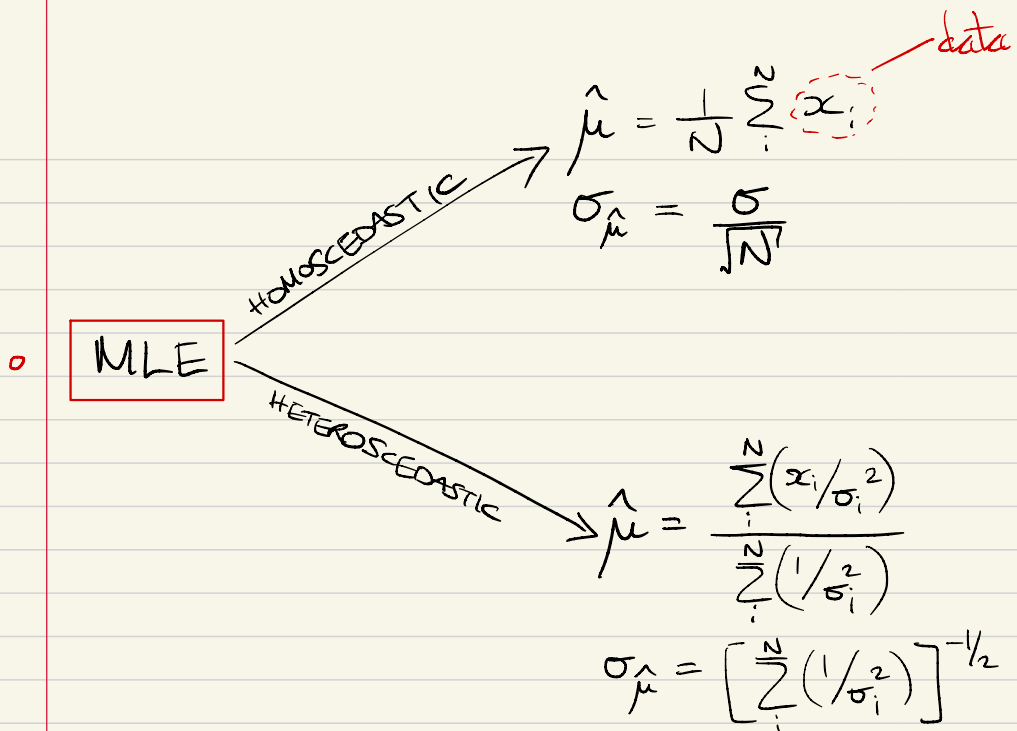 data
μ̂ = 1/N Σ_i^N x_i
σ_μ̂ = σ/√N
HOMOSCEDASTIC
MLE
HETEROSCEDASTIC
μ̂ = Σ_i^N (x_i/σ_i²) / Σ_i^N (1/σ_i²)
σ_μ̂ = [Σ_i^N (1/σ_i²)]^(-1/2)